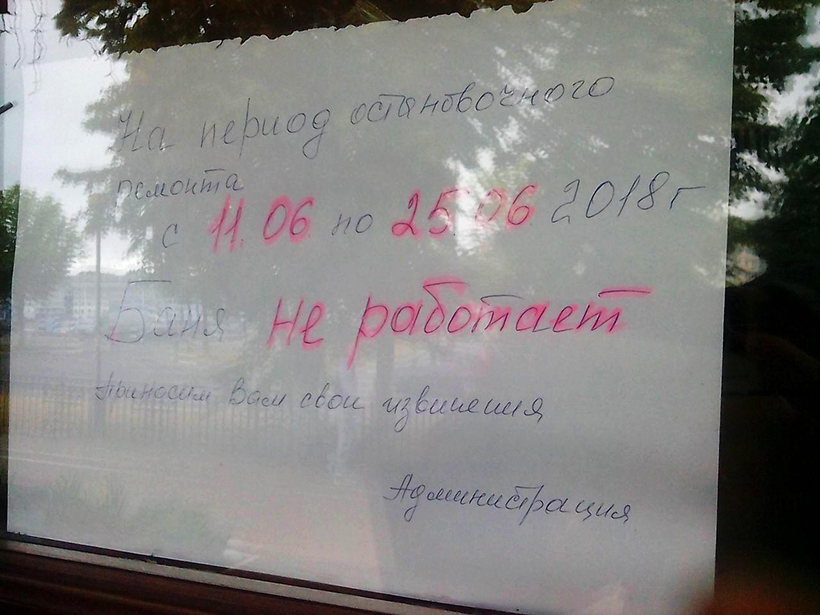 На период остановочного
ремонта
с 11.06 по 25.06 2018г
Баня не работает
Приносим Вам свои извинения
Администрация